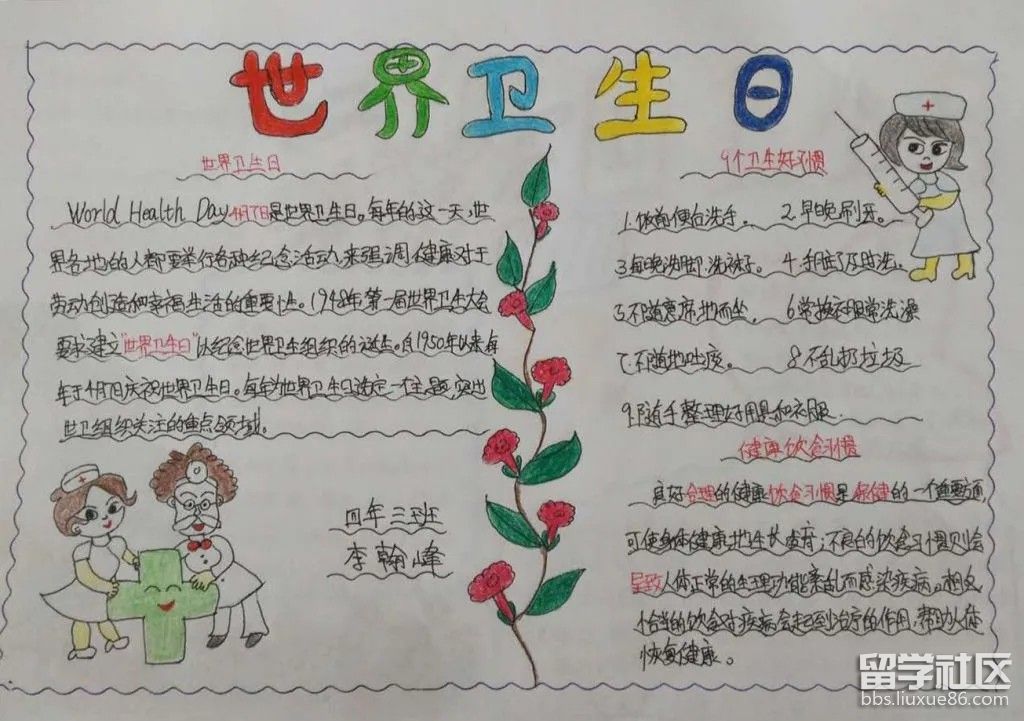 世界卫生日
世界卫生日
World Health Day 4月7日是世界卫生日。每年的这一天,世
界各地的人都要举行各种纪念活动,来强调健康对于
劳动创造和幸福生活的重要性。1948年,第一届世界卫生大会
要求建立"世界卫生日"以纪念世界卫生组织的诞生。自1950年以来,每
年于4月7日庆祝世界卫生日。每年为世界卫生日选定一个主题,突出
世卫组织关注的重点领域。
四年三班
李翰峰
9个卫生好习惯
1.饭前便后洗手。 2.早晚刷牙。
3.每晚洗脚、洗袜子。 4.手脏了及时洗。
5.不随意席地而坐。 6常换衣服常洗澡
7.不随地吐痰。 8.不乱扔垃圾
9.随手整理好用具和衣服.
健康饮食习惯
良好合理的健康饮食习惯是保健的一个重要方面,
可使身体健康地生长发育;不良的饮食习惯则会
导致人体正常的生理功能紊乱而感染疾病。相反,
恰当的饮食对疾病会起到治疗的作用,帮助人体
恢复健康。
留学社区
bbs.liuxue86.com